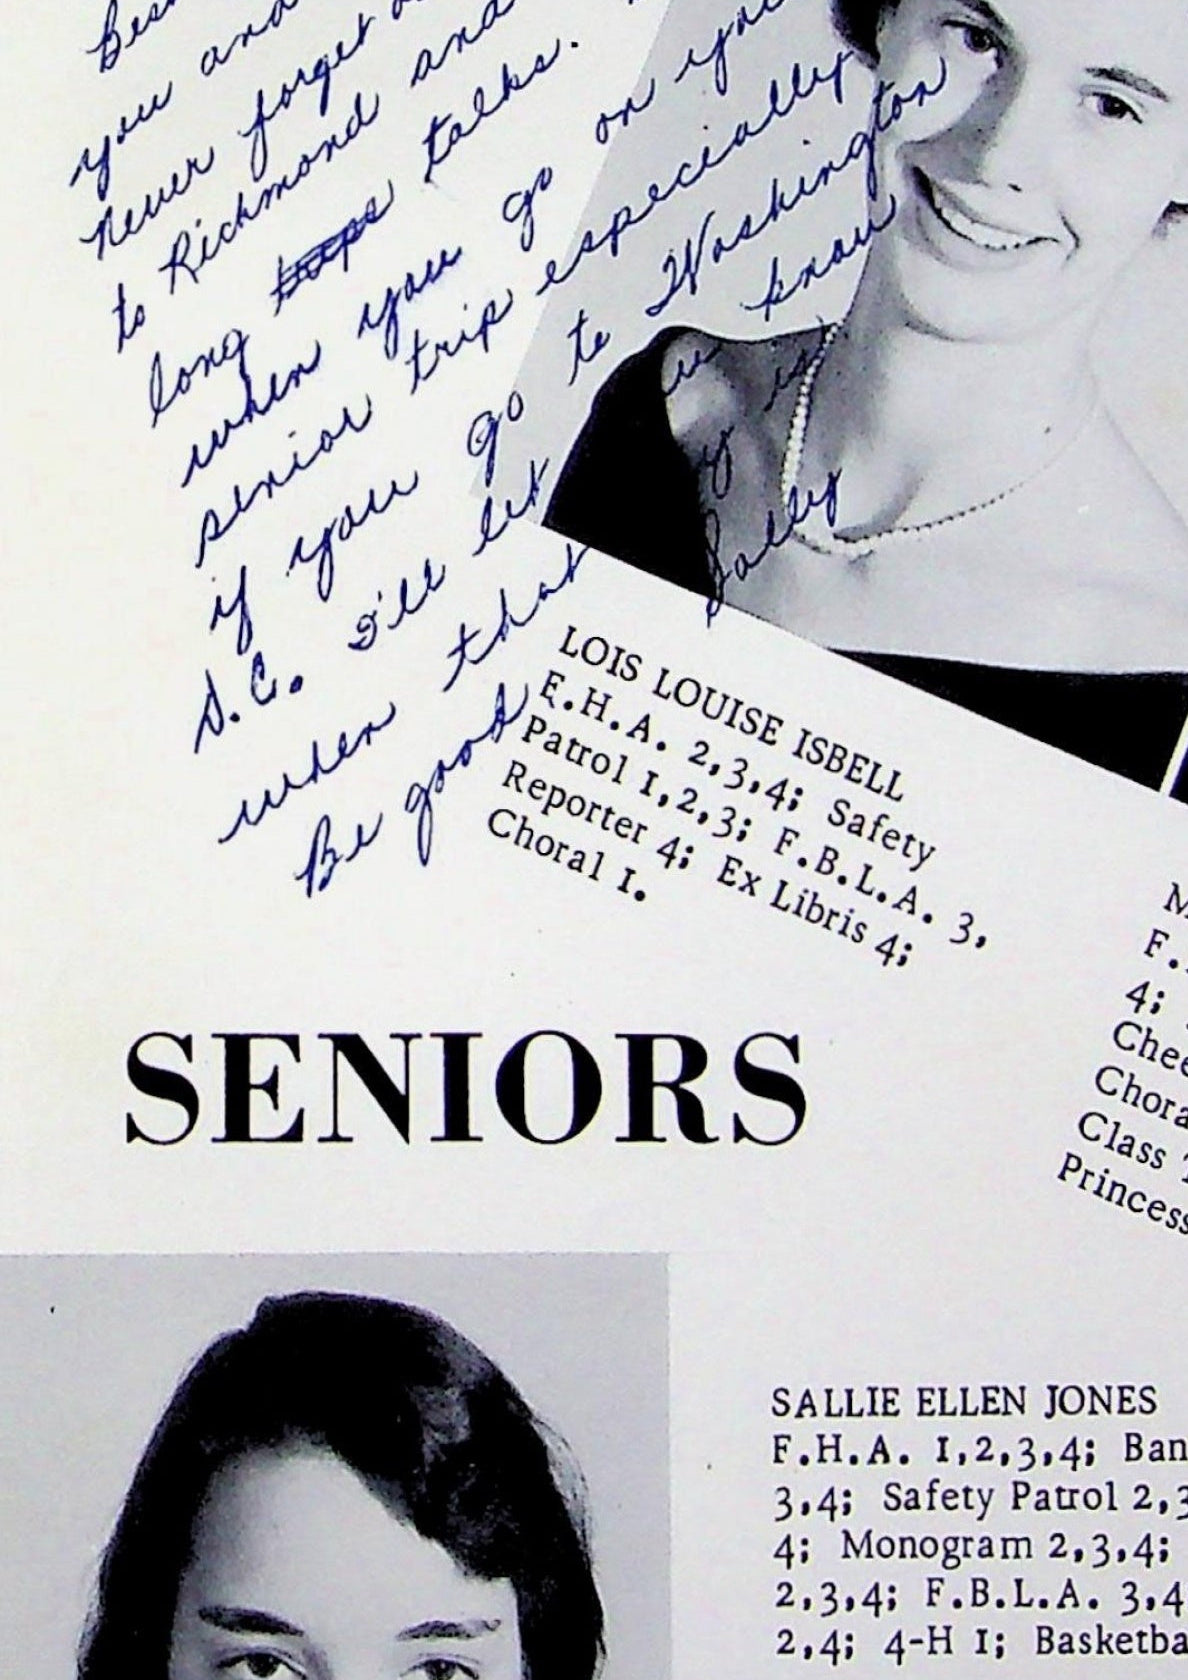 you and
never forget
to Richmond and
long trips talks.
when you go on
senior trip especially
if you go to Washington
D.C. I'll let know
when that is
Be good
Sally
LOIS LOUISE ISBELL
F.H.A. 2,3,4; Safety
Patrol 1,2,3; F.B.L.A. 3,
Reporter 4; Ex Libris 4;
Choral 1.
F.
4;
Chee
Chora
Class
Princess
SENIORS
SALLIE ELLEN JONES
F.H.A. 1,2,3,4; Ban
3,4; Safety Patrol 2,3
4; Monogram 2,3,4;
2,3,4; F.B.L.A. 3,4
2,4; 4-H 1; Basketba